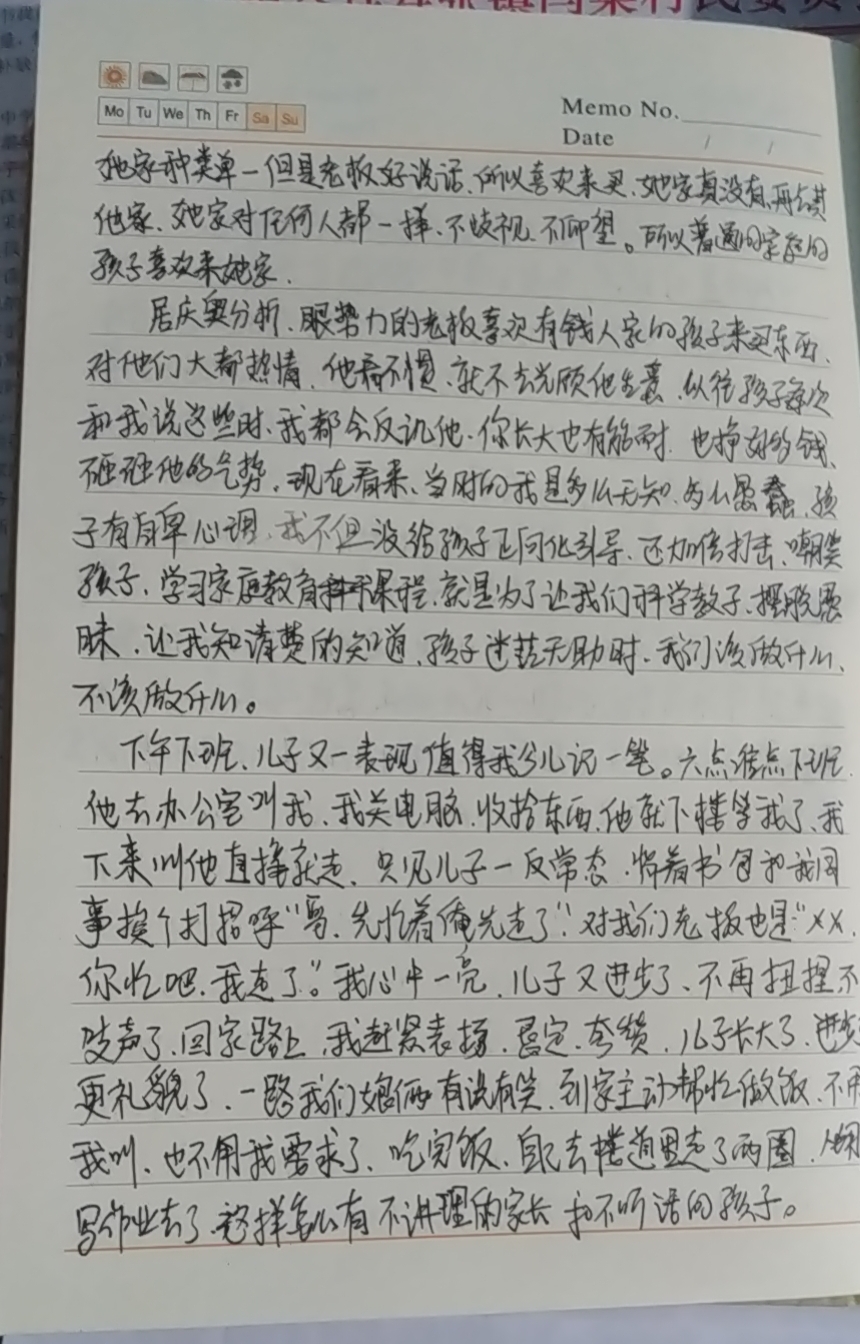 Mo Tu We Th Fr Sa Su
Memo No.
Date / /
她家种类单一但是老板好说话、所以喜欢来买、她家真没有、再去其
他家、她家对任何人都一样、不歧视、不仰望。所以普通的家庭的
孩子喜欢来她家.
居庆奥分析、眼势力的老板喜欢有钱人家的孩子来买东西、
对他们大都热情、他看不惯、就不去光顾他生意、以往孩子每次
和我说这些时、我都会反讥他、你长大也有能耐、也挣好多钱、
砸砸他的气势。现在看来、当时的我是多么无知、多么愚蠢、孩
子有自卑心理、我不但没给孩子正向化引导、还加倍打击、嘲笑
孩子、学习家庭教育课程、就是为了让我们科学教子、摆脱愚
昧、让我知清楚的知道、孩子迷茫无助时、我们该做什么、
不该做什么。
下午下班、儿子又一表现值得我多儿记一笔。六点准点下班、
他去办公室叫我、我关电脑、收拾东西、他就下楼等我了、我
下来叫他直接就走、只见儿子一反常态、背着书包和我同
事挨个打招呼“哥、先忙着俺先走了”、对我们老板也是“XX、
你忙吧、我走了”。我心中一亮、儿子又进步了、不再扭捏不
吱声了、回家路上、我赶紧表扬、肯定、夸赞、儿子长大了、进步
更礼貌了、一路我们娘俩有说有笑、到家主动帮忙做饭、不用
我叫、也不用我要求了、吃完饭、自己去楼道里走了两圈、
写作业去了、这样怎么有不讲理的家长和不听话的孩子。